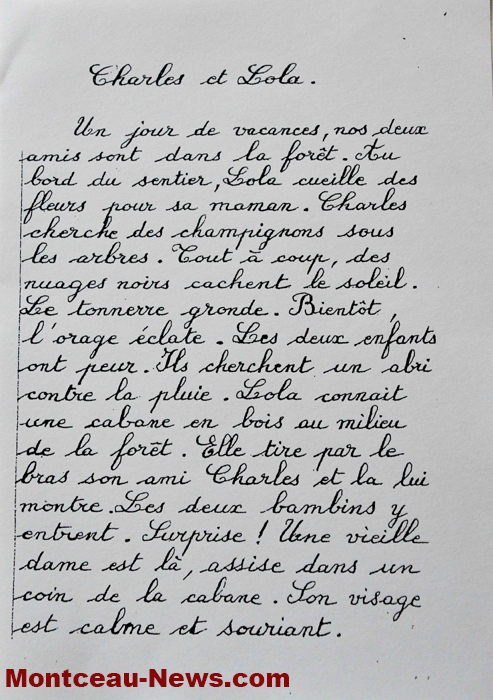 Charles et Lola.
Un jour de vacances, nos deux
amis sont dans la forêt. Au
bord du sentier, Lola cueille des
fleurs pour sa maman. Charles
cherche des champignons sous
les arbres. Tout à coup, des
nuages noirs cachent le soleil.
Le tonnerre gronde. Bientôt,
l'orage éclate. Les deux enfants
ont peur. Ils cherchent un abri
contre la pluie. Lola connait
une cabane en bois au milieu
de la forêt. Elle tire par le
bras son ami Charles et la lui
montre. Les deux bambins y
entrent. Surprise ! Une vieille
dame est là, assise dans un
coin de la cabane. Son visage
est calme et souriant.
Montceau-News.com